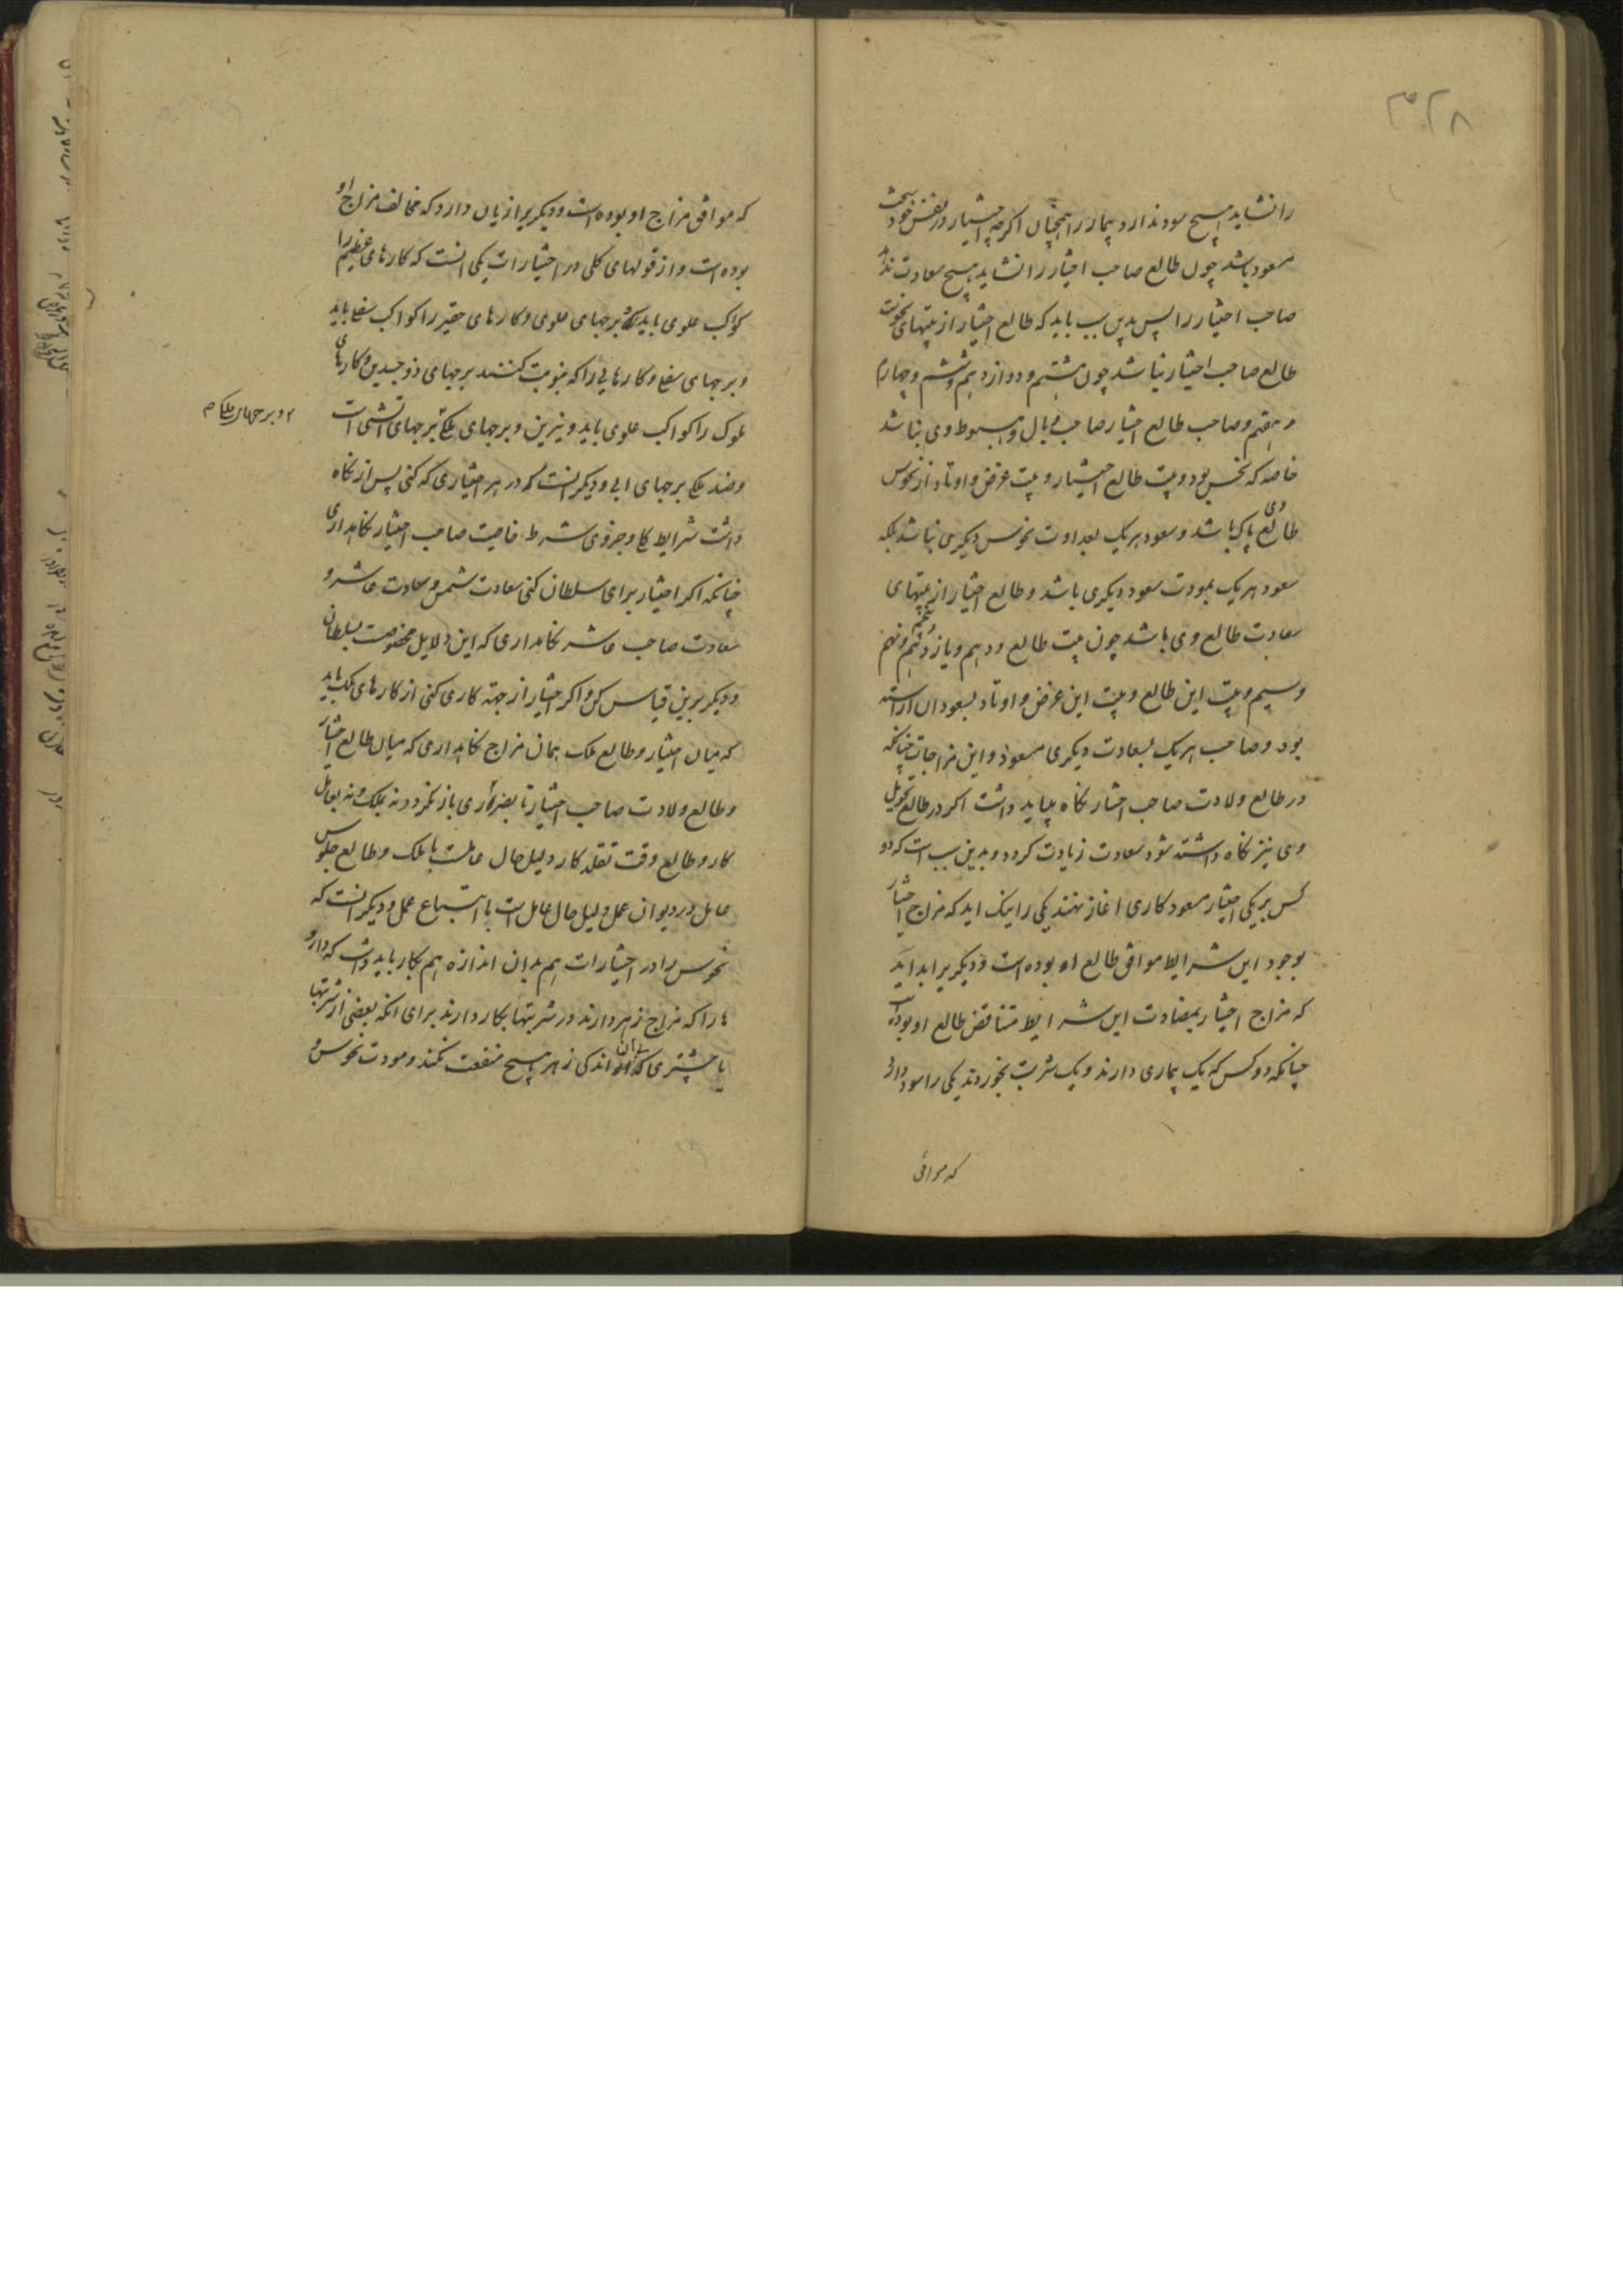 را نشاید هیچ سود ندارد بیمار را همچنان اگرچه اختیار در نفس خود سخت
مسعود باشد چون طالع صاحب اختیار را نشاید هیچ سعادت ندهد
صاحب اختیار را پس بدین سبب باید که طالع اختیار از بیتهای نحوست
طالع صاحب اختیار نباشد چون هشتم و دوازدهم و ششم و چهارم
و هفتم و صاحب طالع اختیار صاحب وبال و هبوط وی نباشد
خاصه که نحس بود و بیت طالع اختیار و بیت غرض و اوتاد از نحوس
طالع وی پاک باشد و سعود هریک بعداوت نحوس دیگری نباشد بلکه
سعود هریک بمودت سعود دیگری باشد و طالع اختیار از بیتهای
سعادت طالع وی باشد چون بیت طالع و دهم و یازدهم و پنجم و نهم
و سیم و بیت این طالع و بیت این غرض و اوتاد بسعود ان اراسته
بود و صاحب هریک بسعادت دیگری مسعود و این مزاجات چنانکه
در طالع ولادت صاحب اختیار نگاه بباید داشت اکر در طالع تحویل
وی نیز نگاه داشته شود سعادت زیادت کردد و بدین سبب است که دو
کس بر یکی اختیار مسعود کاری اغاز نهند یکی را نیک اید که مزاج اختیار
بوجود این شرایط موافق طالع او بوده است و دیگریرا بد اید
که مزاج اختیار بمضادت این شرایط متناقض طالع او بوده است
چنانکه دو کس که یک بیماری دارند و یک شربت بخوردند یکی را سود دارد
که موافق
که موافق مزاج او بوده است و دیگریرا زیان دارد که مخالف مزاج او
بوده است و از قولهای کلی در اختیارات یکی انست که کارهای عظیم را
کواکب علوی باید و برجهای علوی و کارهای حقیر را کواکب سفلی باید
و برجهای سفلی و کارهایی را که بنوبت کنند برجهای ذوجسدین و کارهای
ملوک را کواکب علوی باید و نیرین و برجهای ملکی برجهای اتشی است
و ضد ملکی برجهای ابی و دیگر انست که در هر اختیاری که کنی پس از نگاه
داشت شرایط کلی و جزوی شرط خاصیت صاحب اختیار نگاه داری
چنانکه اکر اختیار برای سلطان کنی سعادت شمس و سعادت عاشر و
سعادت صاحب عاشر نگاه داری که این دلایل مخصوصست بسلطان
و دیگر برین قیاس کن و اکر اختیار از جهة کاری کنی از کارهای ملک باید
که میان اختیار و طالع ملک همان مزاج نگاه داری که میان طالع اختیار
و طالع ولادت صاحب اختیار تا بضرری باز نگردد نه بملک و نه بعامل
کار و طالع وقت تقلد کار دلیل حال عاملست با ملک و طالع جلوس
عامل در دیوان عمل دلیل حال عامل است با اتباع عمل و دیگر انست که
نحوس را در اختیارات هم بدان اندازه هم بکار باید داشت که دارو
ها را که مزاج زهر دارند در شربتها بکار دارند برای انکه بعضی از شربتها
یا بیشتری که بی ان اندکی زهر هیچ منفعت نکند و مودت نحوس و